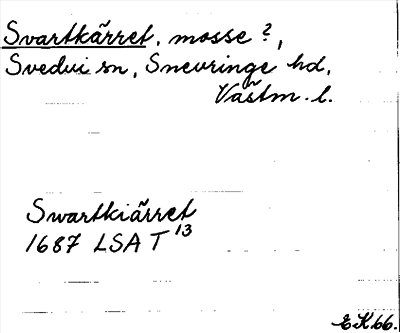 Svartkärret, mosse?,
Svedvi sn, Snevringe hd,
Västm. l.
Swartkiärret
1687 LSA T 13
EK 66.